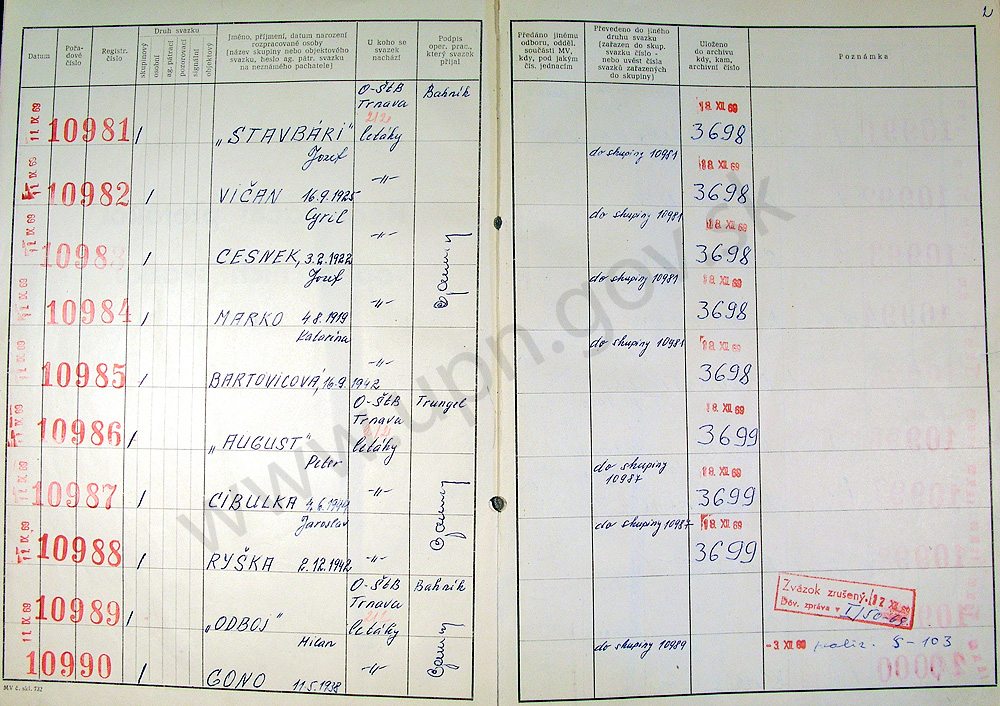 2
Datum
Pořadové číslo
Registr. číslo
Druh svazku
skupinový
osobní
ag. pátrací
pozorovací
signální
objektový
Jméno, příjmení, datum narození
rozpracované osoby
(název skupiny nebo objektového
svazku, heslo ag. pátr. svazku
na neznámého pachatele)
U koho se
svazek
nachází
Podpis
oper. prac.,
který svazek
přijal
Předáno jinému
odboru, odděl.
součásti MV,
kdy, pod jakým
čís. jednacím
Převedeno do jiného
druhu svazku
(zařazen do skup.
svazku číslo -
nebo uvést čísla
svazků zařazených
do skupiny)
Uloženo
do archivu
kdy, kam,
archivní číslo
Poznámka
11. IX. 69 10981 / „STAVBÁRI" O-ŠtB Trnava letáky Bahník 18. XII 69 3698
11. IX. 69 10982 / Jozef VIČAN 16.9.1925 -„- do skupiny 10981 18. XII 69 3698
11. IX. 69 10983 / Cyril CESNEK, 3.2.1922 -„- do skupiny 10981 18. XII 69 3698
11. IX. 69 10984 / Jozef MARKO 4.8.1919 -„- do skupiny 10981 18. XII 69 3698
11. IX. 69 10985 / Katarína BARTOVICOVÁ, 16.9.1942 -„- do skupiny 10981 18. XII 69 3698
11. IX. 69 10986 / „AUGUST" O-ŠtB Trnava letáky Trungel 18. XII 69 3699
11. IX. 69 10987 / Peter CIBULKA 4.6.1944 -„- do skupiny 10987 18. XII 69 3699
11. IX. 69 10988 / Jaroslav RYŠKA 2.12.1942 -„- do skupiny 10987 18. XII 69 3699
11. IX. 69 10989 / „ODBOJ" O-ŠtB Trnava letáky Bahník Zväzok zrušený 12 XII 69
Dôv. zpráva v I/50-69.
11. IX. 69 10990 / Milan GONO 11.5.1938 -„- do skupiny 10989 -3 XII 69 realiz. § - 103
MV č. skl. 732
www.upn.gov.sk